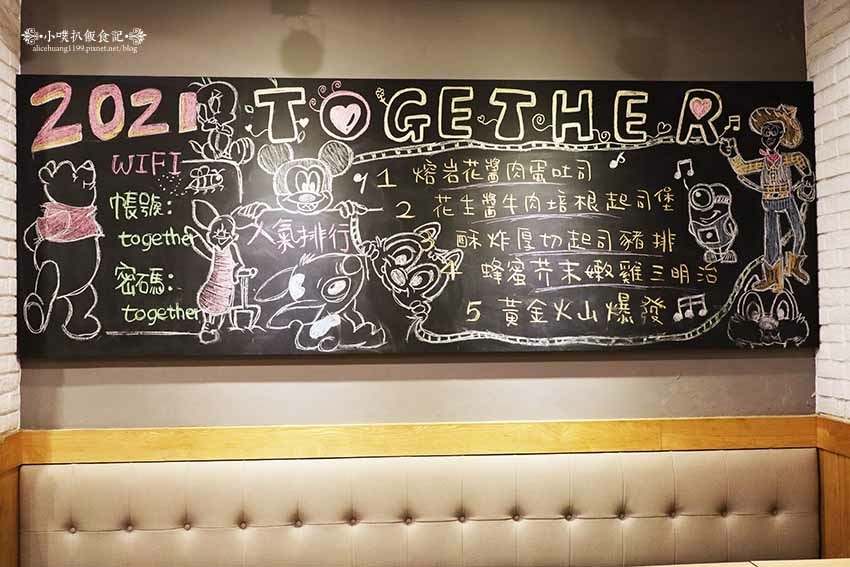 小噗扒飯食記
alicehuang1199.pixnet.net/blog
2021 TOGETHER
WIFI
帳號:
together
密碼:
together
人氣排行
1 熔岩花醬肉蛋吐司
2 花生醬牛肉培根起司堡
3 酥炸厚切起司豬排
4 蜂蜜芥末嫩雞三明治
5 黃金火山爆發